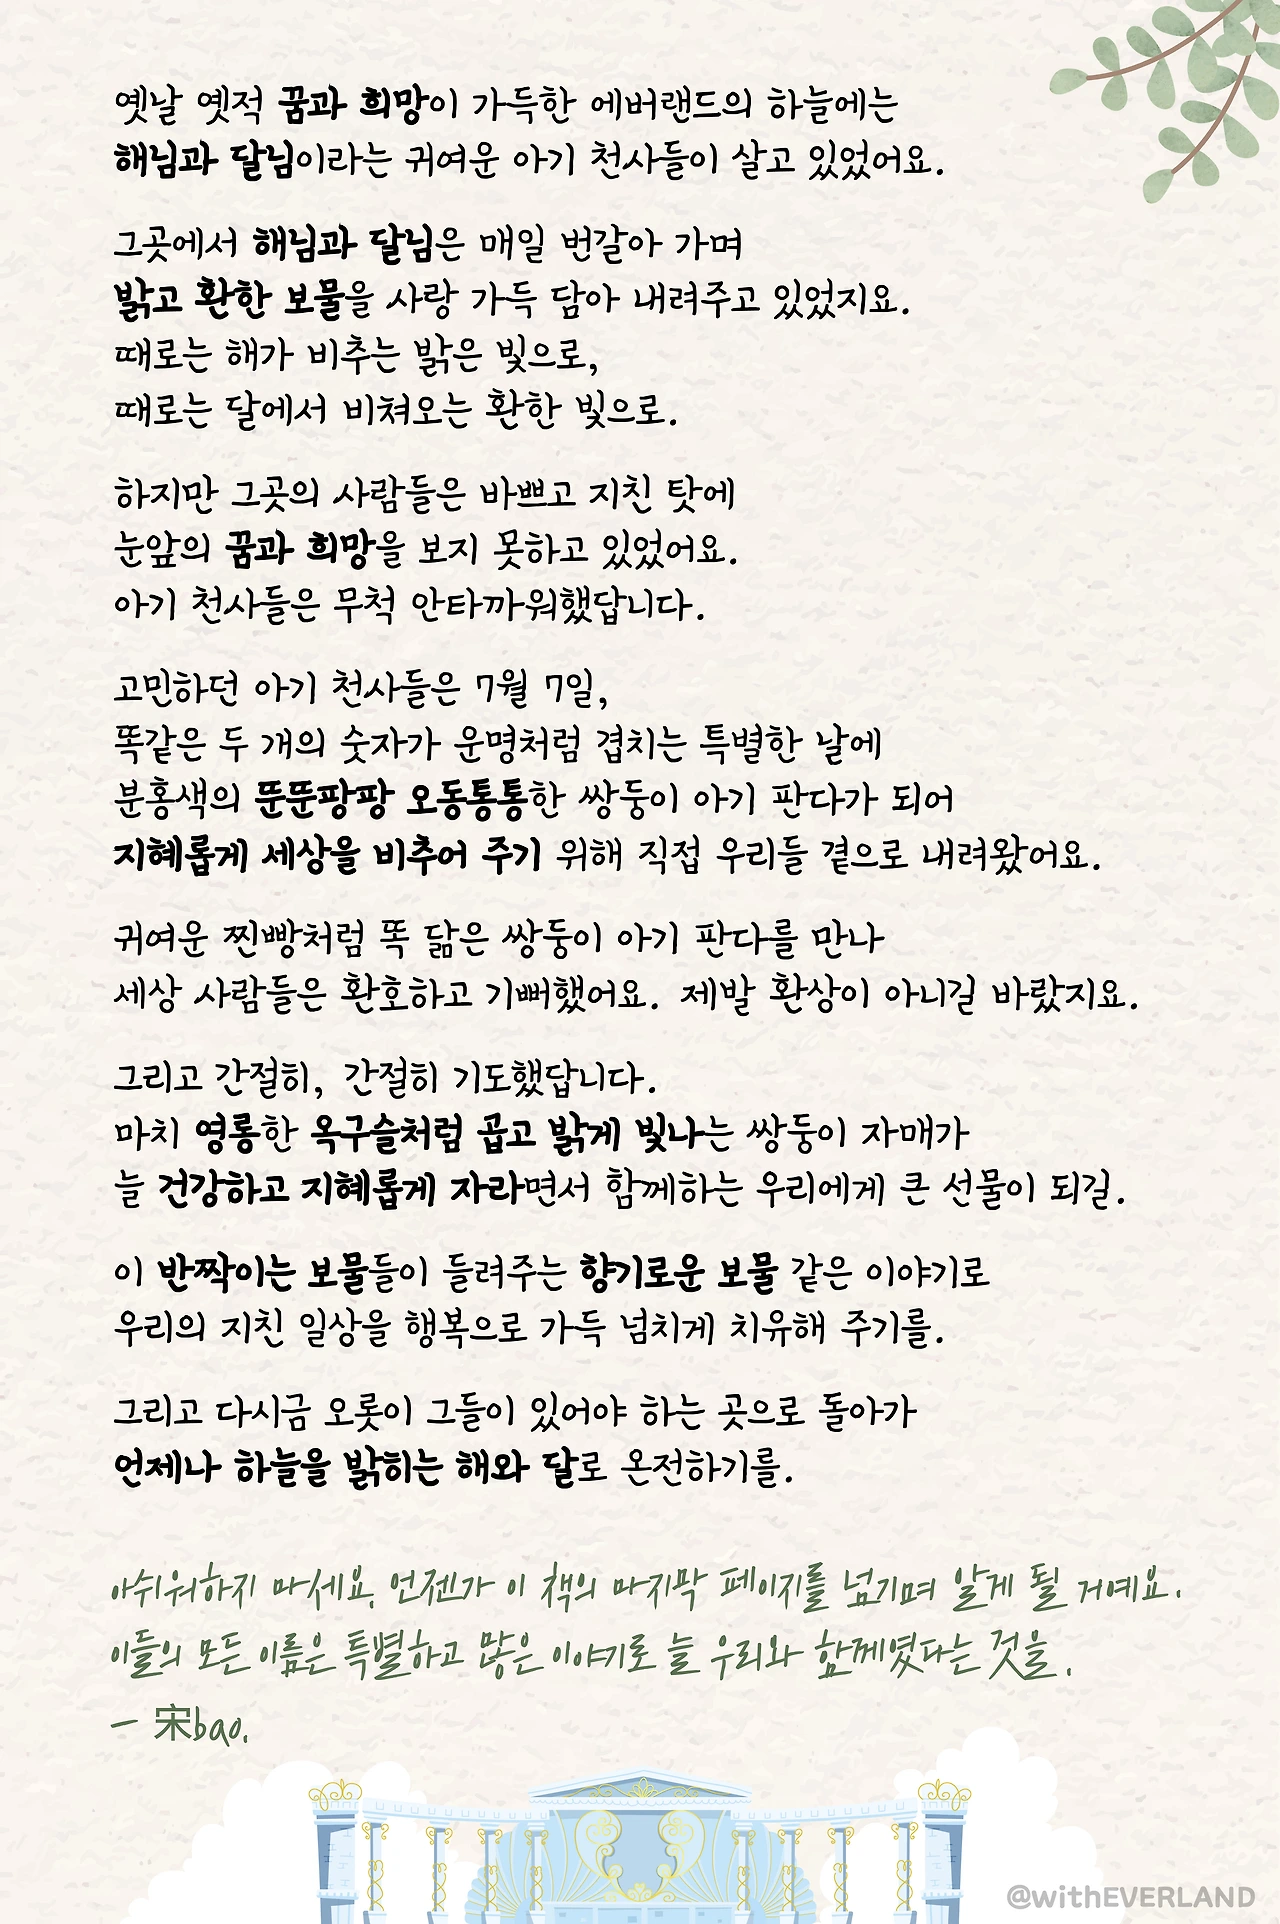 옛날 옛적 꿈과 희망이 가득한 에버랜드의 하늘에는
해님과 달님이라는 귀여운 아기 천사들이 살고 있었어요.
그곳에서 해님과 달님은 매일 번갈아 가며
밝고 환한 보물을 사랑 가득 담아 내려주고 있었지요.
때로는 해가 비추는 밝은 빛으로,
때로는 달에서 비쳐오는 환한 빛으로.
하지만 그곳의 사람들은 바쁘고 지친 탓에
눈앞의 꿈과 희망을 보지 못하고 있었어요.
아기 천사들은 무척 안타까워했답니다.
고민하던 아기 천사들은 7월 7일,
똑같은 두 개의 숫자가 운명처럼 겹치는 특별한 날에
분홍색의 뚠뚠팡팡 오동통통한 쌍둥이 아기 판다가 되어
지혜롭게 세상을 비추어 주기 위해 직접 우리들 곁으로 내려왔어요.
귀여운 찐빵처럼 똑 닮은 쌍둥이 아기 판다를 만나
세상 사람들은 환호하고 기뻐했어요. 제발 환상이 아니길 바랐지요.
그리고 간절히, 간절히 기도했답니다.
마치 영롱한 옥구슬처럼 곱고 밝게 빛나는 쌍둥이 자매가
늘 건강하고 지혜롭게 자라면서 함께하는 우리에게 큰 선물이 되길.
이 반짝이는 보물들이 들려주는 향기로운 보물 같은 이야기로
우리의 지친 일상을 행복으로 가득 넘치게 치유해 주기를.
그리고 다시금 오롯이 그들이 있어야 하는 곳으로 돌아가
언제나 하늘을 밝히는 해와 달로 온전하기를.
아쉬워하지 마세요. 언젠가 이 책의 마지막 페이지를 넘기며 알게 될 거예요.
이들의 모든 이름은 특별하고 많은 이야기로 늘 우리와 함께였다는 것을.
- 宋bao.
@withEVERLAND